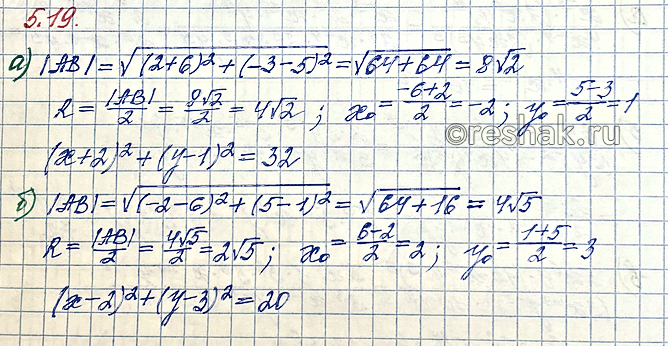 5.19.
а) |AB| = √((2+6)² + (-3-5)²) = √(64+64) = 8√2
R = |AB|/2 = 8√2/2 = 4√2 ; x₀ = (-6+2)/2 = -2 ; y₀ = (5-3)/2 = 1
©reshak.ru
(x+2)² + (y-1)² = 32
б) |AB| = √((-2-6)² + (5-1)²) = √(64+16) = 4√5
R = |AB|/2 = 4√5/2 = 2√5 ; x₀ = (6-2)/2 = 2 ; y₀ = (1+5)/2 = 3
(x-2)² + (y-3)² = 20